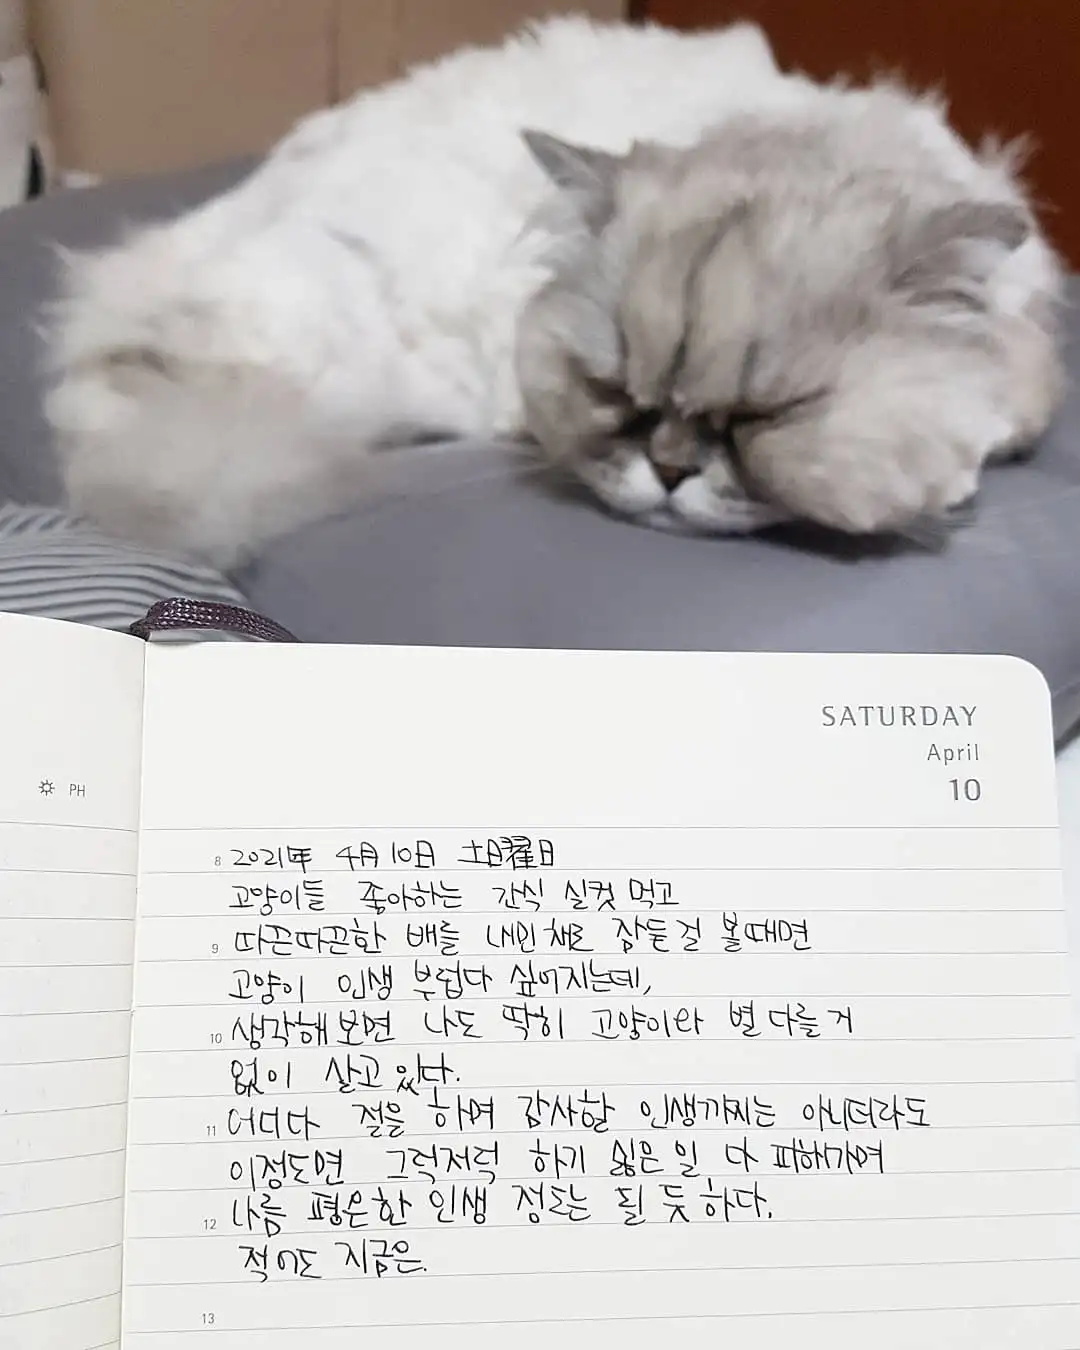 SATURDAY
April
10
PH
8 2021年 4月 10日 土曜日
고양이들 좋아하는 간식 실컷 먹고
9 따끈따끈한 배를 내민 채로 잠든걸 볼때면
고양이 인생 부럽다 싶어지는데,
10 생각해보면 나도 딱히 고양이와 별 다를 거
없이 살고 있다.
11 어디다 절을 하며 감사할 인생까지는 아니더라도
이정도면 그럭저럭 하기 싫은 일 다 피해가며
12 나름 평온한 인생 정도는 될 듯 하다.
적어도 지금은.
13